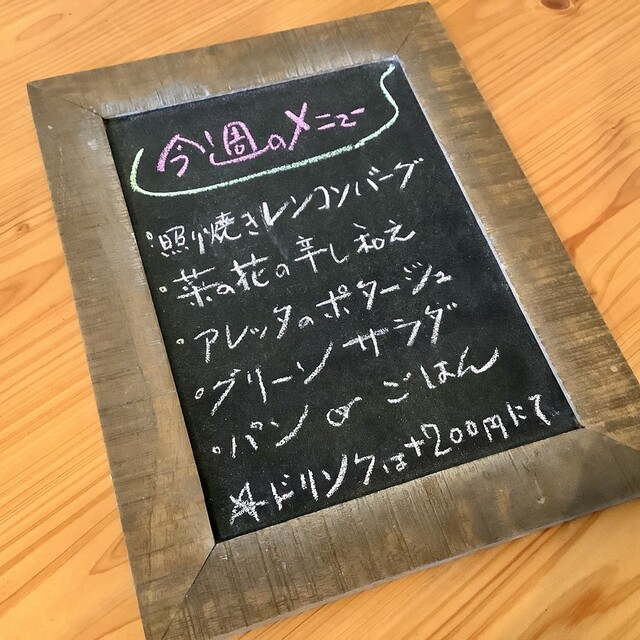 今週のメニュー
・照り焼きレンコンバーグ
・菜の花の辛し和え
・アレッタのポタージュ
・グリーンサラダ
・パン or ごはん
☆ドリンクは+200円にて